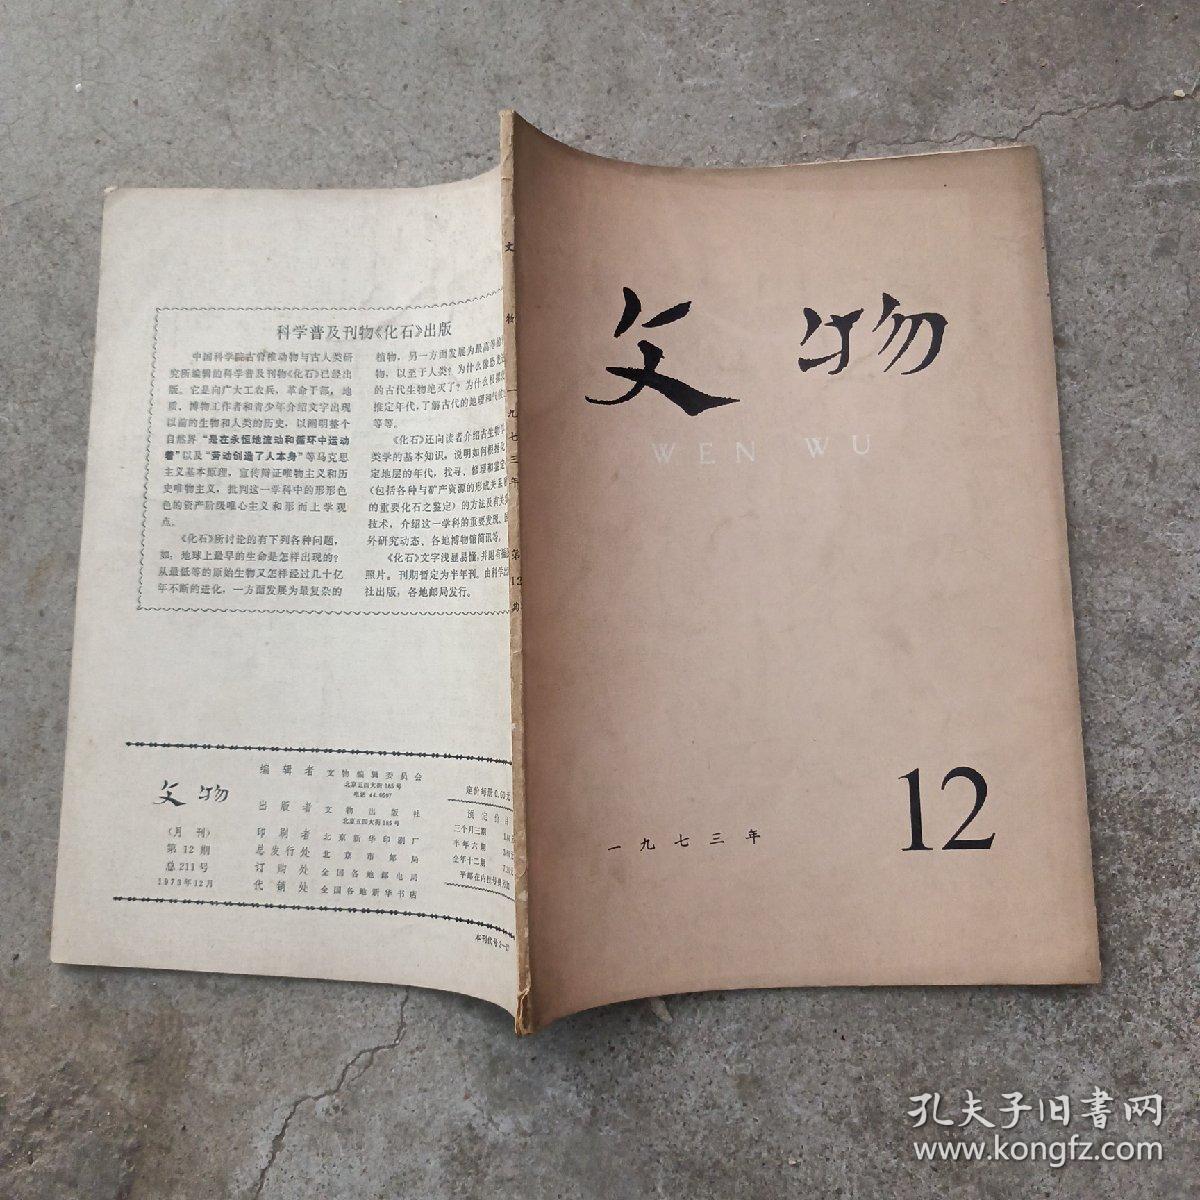 文物
WEN WU
一九七三年
12
文物 一九七三年 第12期
科学普及刊物《化石》出版
中国科学院古脊椎动物与古人类研
究所编辑的科学普及刊物《化石》已经出
版。它是向广大工农兵，革命干部，地
质、博物工作者和青少年介绍文字出现
以前的生物和人类的历史，以阐明整个
自然界“是在永恒地流动和循环中运动
着”以及“劳动创造了人本身”等马克思
主义基本原理，宣传辩证唯物主义和历
史唯物主义，批判这一学科中的形形色
色的资产阶级唯心主义和形而上学观
点。
《化石》所讨论的有下列各种问题，
如，地球上最早的生命是怎样出现的？
从最低等的原始生物又怎样经过几十亿
年不断的进化，一方面发展为最复杂的
植物，另一方面发展为最高等
物，以至于人类？为什么像恐龙
的古代生物绝灭了？为什么根据
推定年代，了解古代的地理和气
等等。
《化石》还向读者介绍古生物
类学的基本知识。说明如何根据
定地层的年代，找寻、修理和鉴定
（包括各种与矿产资源的形成关系
的重要化石之鉴定）的方法及有关
技术，介绍这一学科的重要发现、国
外研究动态、各地博物馆简讯等。
《化石》文字浅显易懂，并附有
照片。刊期暂定为半年刊。由科学出
社出版，各地邮局发行。
文物
（月刊）
第12期
总211号
1973年12月
编辑者 文物编辑委员会
北京五四大街185号
电话 44.0597
出版者 文物出版社
北京五四大街185号
印刷者 北京新华印刷厂
总发行处 北京市邮局
订购处 全国各地邮电局
代销处 全国各地新华书店
定价每册0.60元
预定价目
三个月三期
半年六期
全年十二期
平邮在内挂号
本刊代号2—27
孔夫子旧書网
www.kongfz.com